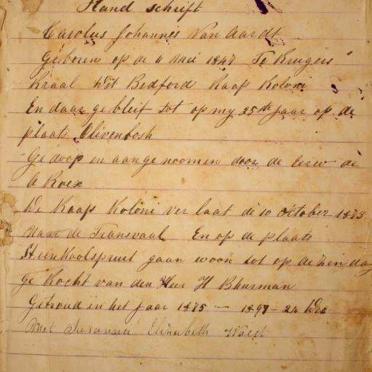 Hand schrift
Carolus Johannes Van Aardt
Geboren op de 11 Mei 1847 Te Krugers
Kraal Wit Bedford Kaap Kolonie
En daar gebleif tot op my 25ste Jaar op de
plaats Olivenbosh
Gedoop en aangenoomen door de Eerw de
Roex
De Kaap Kolonie ver laat de 10 October 1875
Naar de Transvaal En op de plaats
Steenkoolspruit gaan woon tot op de
ge kocht van den Heer H Bhurman
Getroud in het Jaar 1875 — 1897 - 24
Met Elizabeth